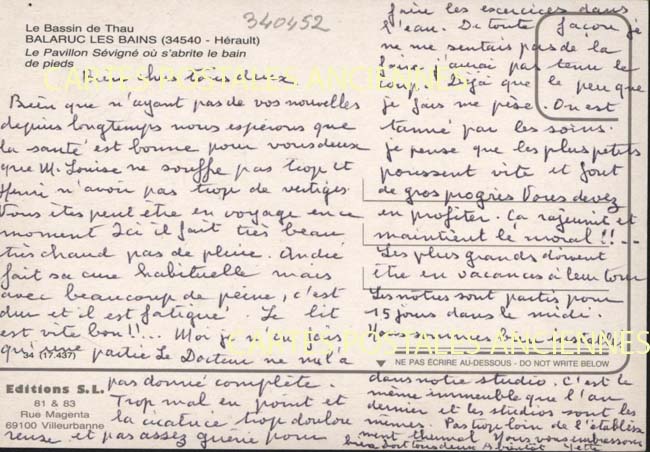 340452
Le Bassin de Thau
BALARUC LES BAINS (34540 - Hérault)
Le Pavillon Sévigné où s'abrite le bain
de pieds
CARTES POSTALES ANCIENNES
Bien chers tous deux
Bien que n'ayant pas de vos nouvelles
depuis longtemps nous espérons que
la santé est bonne pour vous deux
que M. Louise ne souffre pas trop et
Henri n'avoir pas trop de vertiges
Vous êtes peut être en voyage en ce
moment Ici il fait très beau
très chaud pas de pluie. André
fait sa cure habituelle mais
avec beaucoup de peine, c'est
dur et il est fatigué. Le lit
est vite bon!!... Moi je n'en fais
qu'une partie Le Docteur ne m'l'a
34 (17.437)
pas donné complète.
Trop mal en point et
la cicatrice trop doulou
reuse et pas assez guérie pour
Editions S.L.
81 & 83
Rue Magenta
69100 Villeurbanne
faire les exercices dans
l'eau. De toute façon je
ne me sentais pas de la
faire j'aurai pas tenu le
coup. Déjà que le peu que
je fais me pèse. On est
tanné par les soins.
je pense que les plus petits
poussent vite et font
de gros progrès Vous devez
en profiter. Ça rajeunit et
maintient le moral!!...
Les plus grands doivent
être en vacances à leur tour
Les notres sont partis pour
15 jours dans le midi.
Nous sommes bien installés
CARTES POSTALES ANCIENNES
NE PAS ÉCRIRE AU-DESSOUS - DO NOT WRITE BELOW
dans notre studio. C'est le
même immeuble que l'an
dernier et les studios sont les
mêmes. Pas trop loin de l'établisse
ment thermal Nous vous embrassons
bien fort tous deux A bientôt Yette